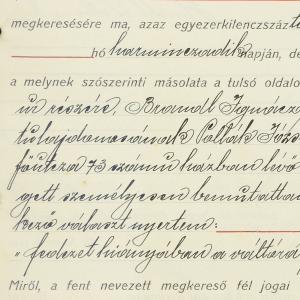 megkeresésére ma, azaz egyezerkilencszáz
hó harminczadik napján, dé
a melynek szószerinti másolata a tulsó olda
ur részére, Brandl Zsigmond
tulajdonosának Pollák Józs
főutcza 73 számu házban lévő
gett személyesen bemutattam
kező választ nyertem:
"fedezet hiányában a váltóra
Miről, a fent nevezett megkereső fél jogai